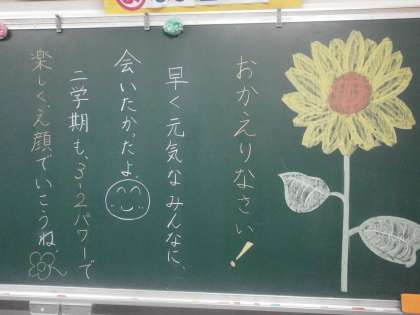 おかえりなさい!
早く元気なみんなに、
会いたかったよ。
二学期も、3-2パワーで
楽しく、え顔でいこうね。